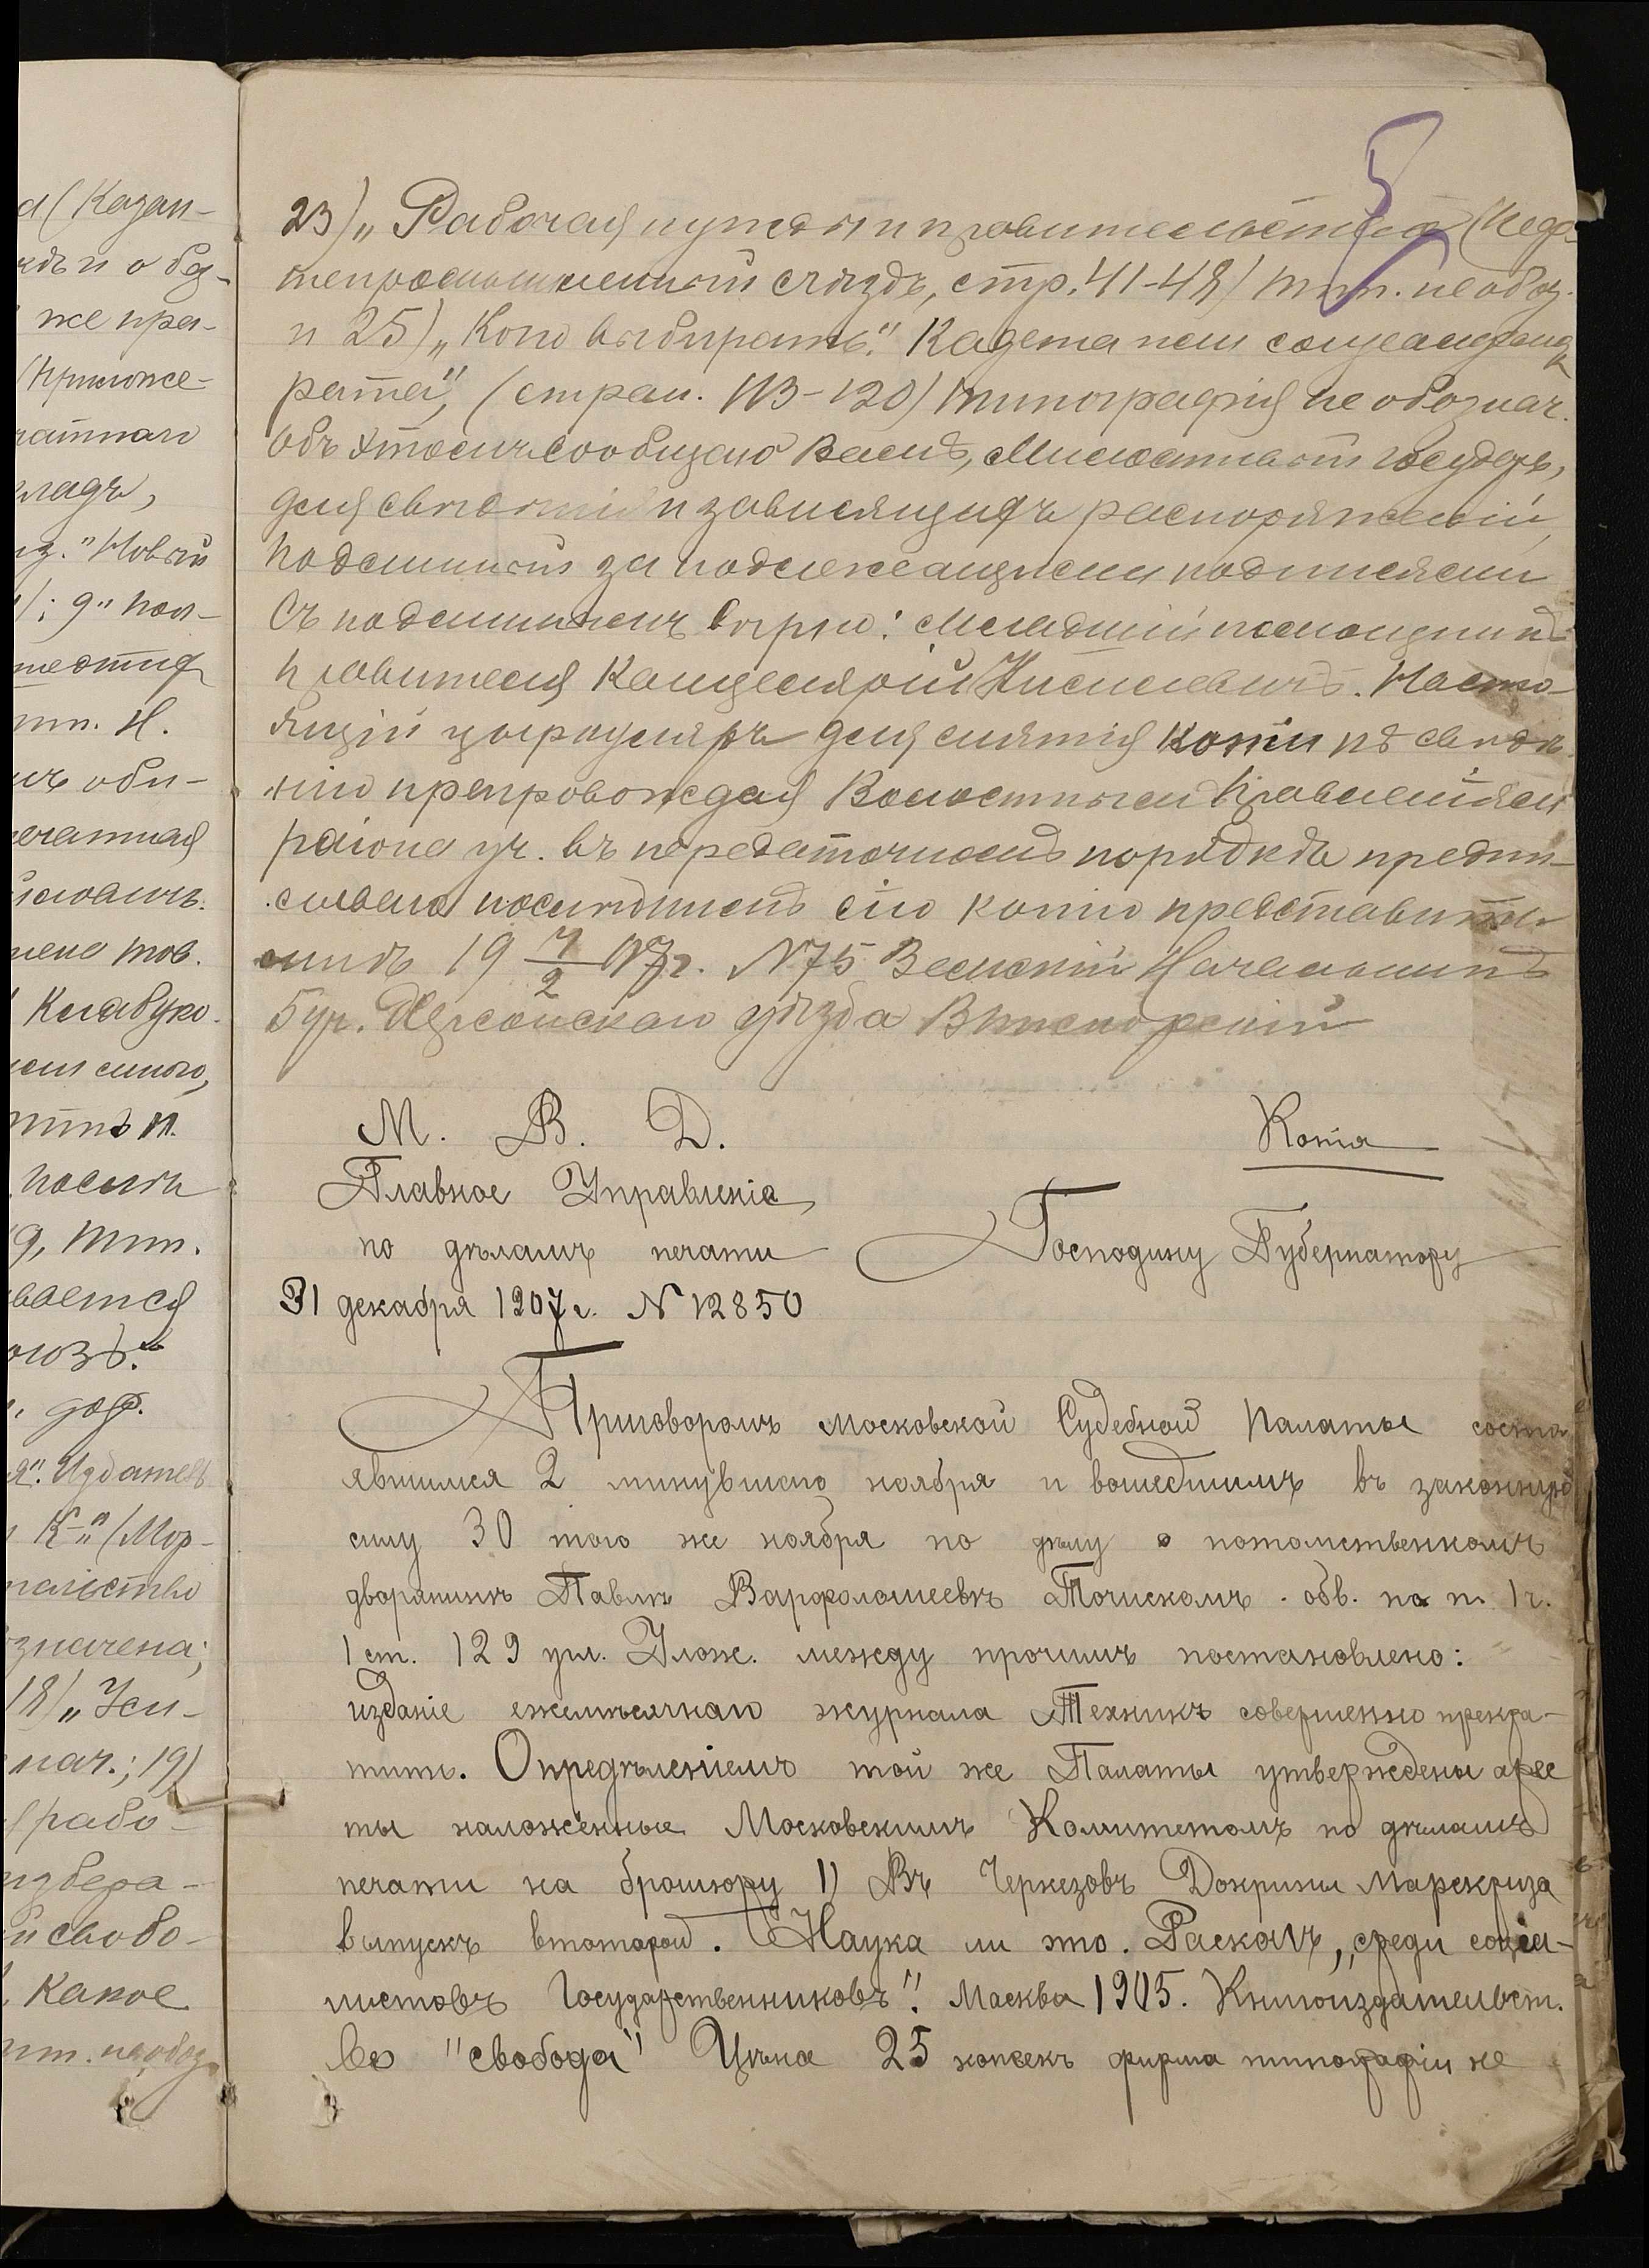 а (Казан-
же пра-
(Приложе-
ратнаго
кладъ,
из." Новый
); 9" Пол-
тип. Н.
ечатная
мена тов.
Клабуко-
Посыл
9, тип.
вается
юзъ."
"Издатель
К-о" (Мор-
значена;
18) "
нач.; 19)
рабо-
избера-
й свобо-
Какое
тип. необоз.
5
23) „Рабочая нужда и правительство (Недо-
непромышленный съѣздъ, стр. 41-48) тип. необоз.
и 25) „Кого выбирать." Кадета или социалдемок
рата", (стран. 113-120) типографія не обознач.
Объ этомъ сообщаю Вамъ, Милостивый Государь,
для свѣдѣнія и зависящихъ распоряженій,
Подлинный за надлежащими подписями
Съ подлиннымъ вѣрно: Младшій помощникъ
Правителя Канцеляріи Кисилевичъ. Насто-
ящій циркуляръ для снятія копіи къ свѣдѣ-
нію препровождая Волостнымъ Правленіям
района уч. въ передаточномъ порядкѣ предпи-
сываю послѣднему сію копію представить
мнѣ 19 4/2 07г. N 75 Земскій Начальникъ
5 уч. Херсонскаго уѣзда
М. В. Д.
Копія
Главное Управленіе
по дѣламъ печати
Господину Губернатору
31 декабря 1907 г. N 12850
Приговоромъ Московской Судебной Палаты состо
явшимся 2 минувшего ноября и вошедшимъ въ законную
силу 30 того же ноября по дѣлу о потомственномъ
дворянинѣ Павлѣ Варфоломеевѣ Точискомъ обв. по п. 1 ч.
1 ст. 129 угл. Улож. между прочимъ постановлено:
изданіе ежемѣсячнаго журнала Техникъ совершенно прекра-
тить. Опредѣленіемъ той же Палаты утверждены арес
ты наложенные Московскимъ Комитетомъ по дѣламъ
печати на брошюру 1) Въ Черкезовъ Доктрины Марксизма
выпускъ втоторой. Наука ли это. Расколъ, „среди соціа-
листовъ Государственниковъ". Москва 1905. Книгоиздательст.
во "свобода" Цѣна 25 копеекъ фирма типографіи не